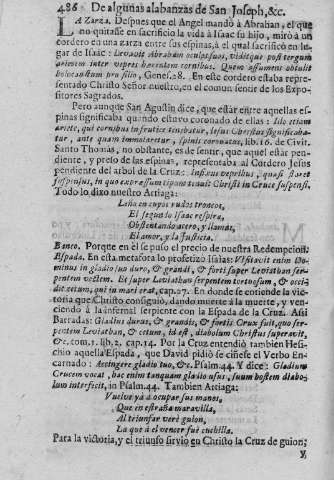 486 De algunas alabanzas de San Joseph, &c.
LA Zarza. Despues que el Angel mandó à Abrahan, el que
no quitasse en sacrificio la vida à Isaac su hijo, mirò à un
cordero en una zarza entre sus espinas, à el qual sacrificò en lu-
gar de Isaac: Levavit Abraham oculos suos, viditque post tergum
arietem inter vepres haerentem cornibus. Quem assumens obtulit
holocaustum pro filio, Genes. 28. En este cordero estaba repre-
sentado Christo Señor nuestro, en el comun sentir de los Expo-
sitores Sagrados.
Pero aunque San Agustin dice, que estàr entre aquellas es-
pinas significaba quando estuvo coronado de ellas: Illo etiam
ariete, qui cornibus in frutice tenebatur, Jesus Christus significaba-
tur, ante quam immolaretur, spinis coronatus, lib. 16. de Civit.
Santo Thomàs, no obstante, es de sentir, que aquel estàr pen-
diente, y preso de las espinas, representaba al Cordero Jesus
pendiente del arbol de la Cruz: Infixus vepribus, quasi staret
suspensus, in quo expressum typum tenuit Christi in Cruce suspensi.
Todo lo dixo nuestro Artiaga:
Leña en cuyos rudos troncos,
El segundo Isaac respira,
Obstentando acero, y llamas,
El amor, y la Justicia.
Banco. Porque en èl se puso el precio de nuestra Redempcion.
Espada. En esta metafora lo profetizò Isaìas: Visitavit enim Do-
minus in gladio suo duro, & grandi, & forti super Leviathan ser-
pentem vectem. Et super Leviathan serpentem tortuosum, & occi-
dit cetum, qui in mari erat, cap. 27. En donde se entiende la vic-
toria que Christo consiguiò, dando muerte à la muerte, y ven-
ciendo à la infernal serpiente con la Espada de la Cruz. Assi
Barradas: Gladius durus, & grandis, & fortis Crux fuit, quo ser-
pentem Leviathan, & cetum, id est, diabolum Christus superavit,
&c. tom. 1. lib. 2. cap. 14. Por la Cruz entendiò tambien Hesi-
chio aquella Espada, que David pidiò se ciñese el Verbo En-
carnado: Accingere gladio tuo, &c. Psalm. 44. Y dice: Gladium
Crucem vocat, hac enim tanquam gladio usus, suum hostem diabo-
lum interficit, in Psalm. 44. Tambien Artiaga:
Vuelve yà à ocupar sus manos,
Que en estraña maravilla,
Al triunfar verè guion,
La que à el vencer fuè cuchilla.
Para la victoria, y el triunfo sirviò en Christo la Cruz de guion;
y